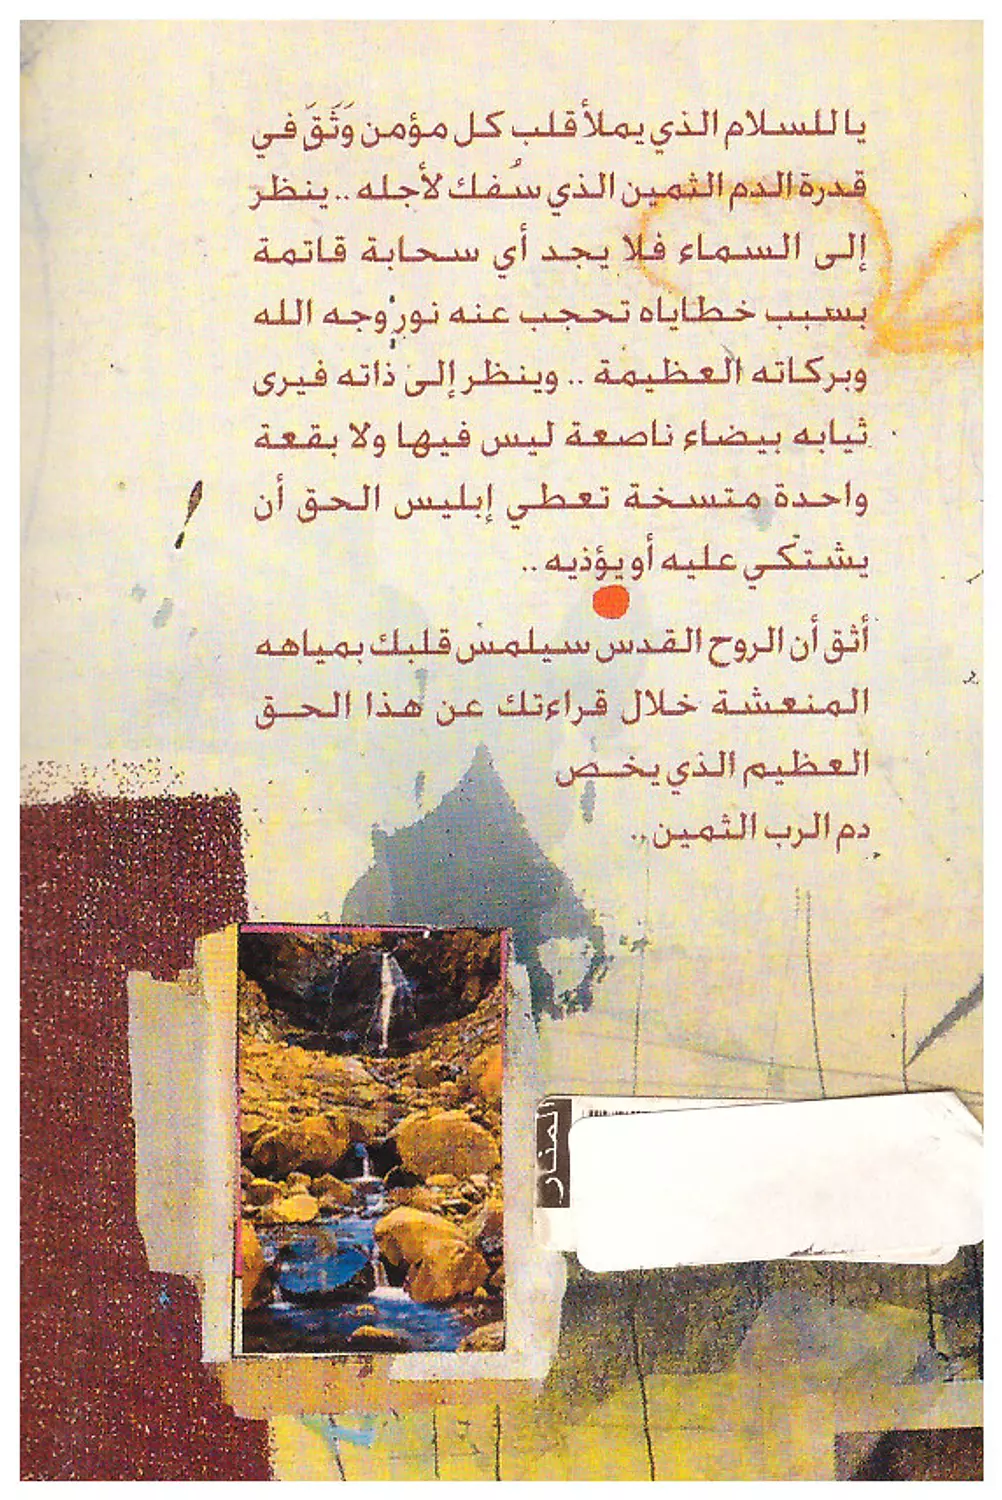 ياللسلام الذي يملأ قلب كل مؤمن وَثَقَ في
قدرة الدم الثمين الذي سُفك لأجله .. ينظر
إلى السماء فلا يجد أي سحابة قاتمة
بسبب خطاياه تحجب عنه نور وجه الله
وبركاته العظيمة .. وينظر إلى ذاته فيرى
ثيابه بيضاء ناصعة ليس فيها ولا بقعة
واحدة متسخة تعطي إبليس الحق أن
يشتكي عليه أو يؤذيه ..
أثق أن الروح القدس سيلمس قلبك بمياهه
المنعشة خلال قراءتك عن هذا الحق
العظيم الذي يخص
دم الرب الثمين ..
المنار